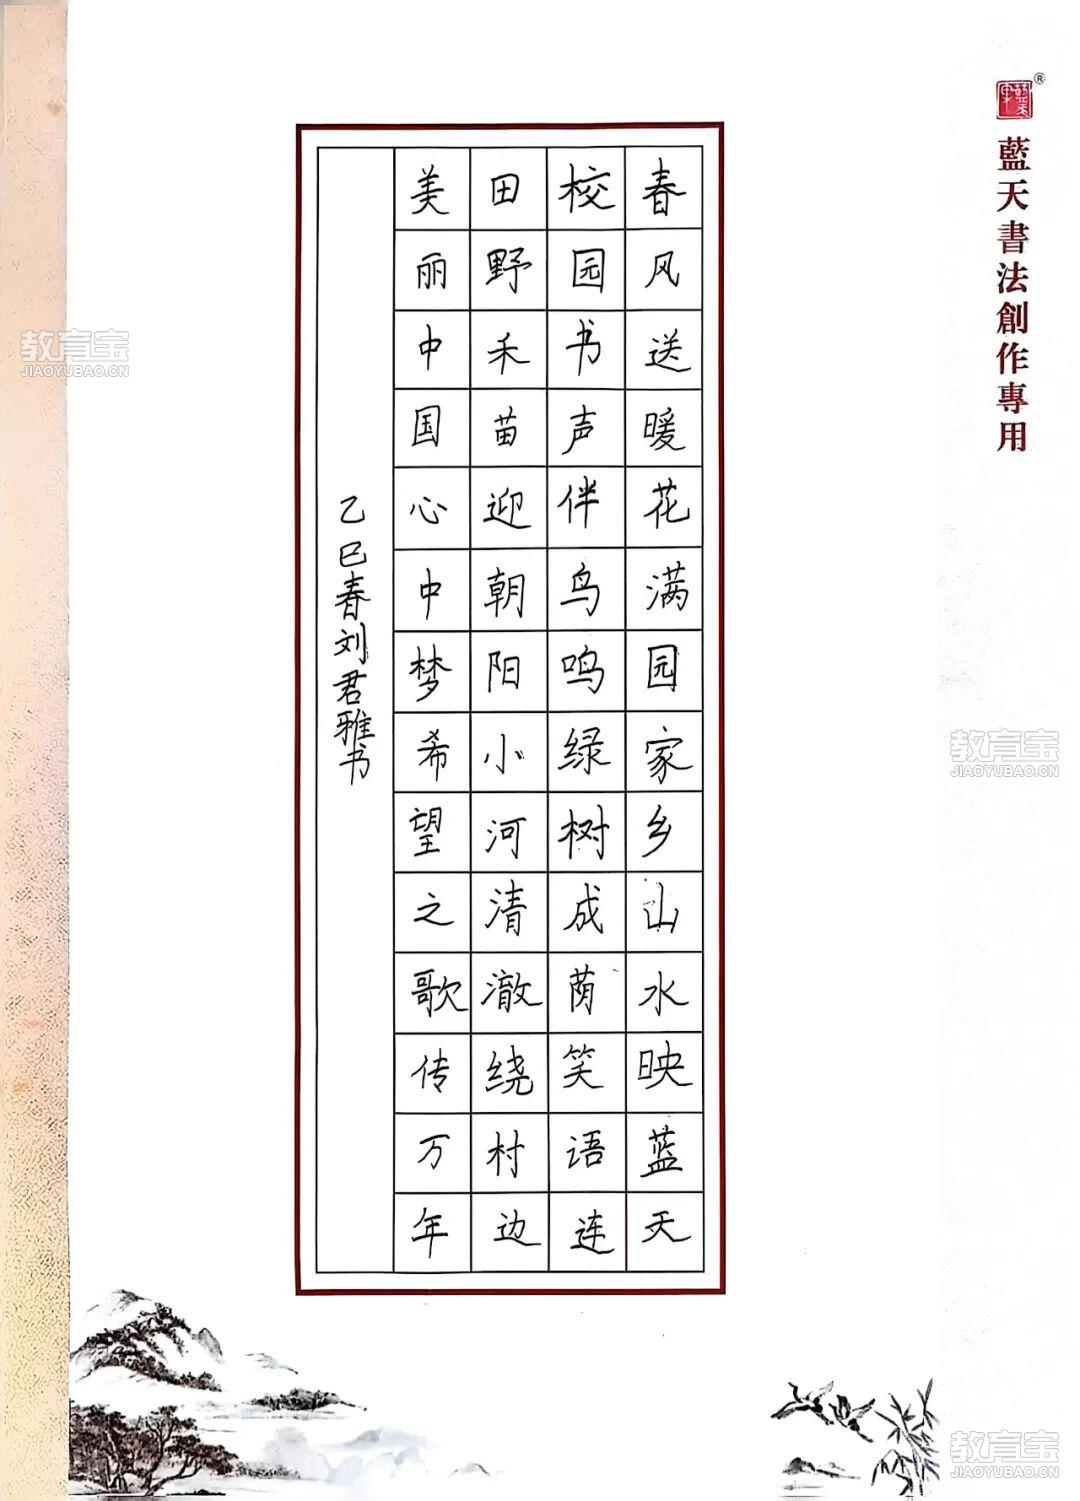 春风送暖花满园家乡山水映蓝天
校园书声伴鸟鸣绿树成荫笑语连
田野禾苗迎朝阳小河清澈绕村边
美丽中国心中梦希望之歌传万年
乙巳春刘君雅书
藍天書法創作專用
®
教育宝
JIAOYUBAO.CN
教育宝
JIAOYUBAO.CN
教育宝
JIAOYUBAO.CN